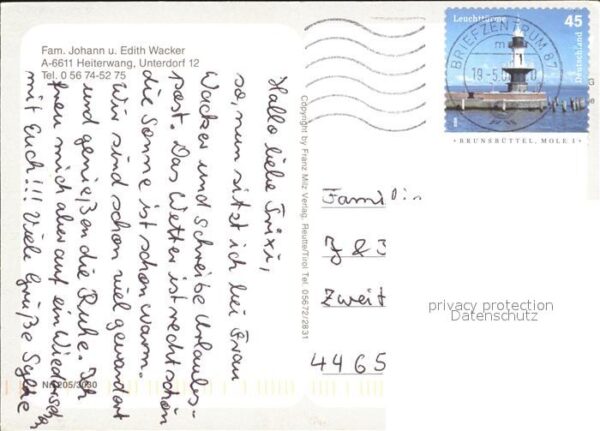 Fam. Johann u. Edith Wacker
A-6611 Heiterwang, Unterdorf 12
Tel. 0 56 74-52 75
Hallo liebe Trixi,
so, nun sitz ich bei Frau
Wacker und schreibe Urlaubs-
post. Das Wetter ist recht schön
die Sonne ist schon warm.
Wir sind schon viel gewandert
und genießen die Ruhe. Ich
freu mich aber auf ein Wiederseh.
mit Euch!!! Viele Grüße Sylvie
Nr. 205/3030
Copyright by Franz Milz Verlag, Reutte/Tirol Tel. 05672/2831
Leuchttürme 45
Deutschland
BRIEFZENTRUM 87
19-5
BRUNSBÜTTEL, MOLE 1
Famili
Zweit
4465
privacy protection
Datenschutz